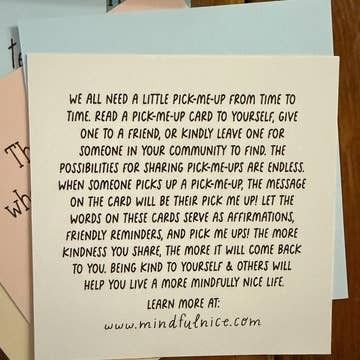 te
Th
wh
WE ALL NEED A LITTLE PICK-ME-UP FROM TIME TO
TIME. READ A PICK-ME-UP CARD TO YOURSELF, GIVE
ONE TO A FRIEND, OR KINDLY LEAVE ONE FOR
SOMEONE IN YOUR COMMUNITY TO FIND. THE
POSSIBILITIES FOR SHARING PICK-ME-UPS ARE ENDLESS.
WHEN SOMEONE PICKS UP A PICK-ME-UP, THE MESSAGE
ON THE CARD WILL BE THEIR PICK ME UP! LET THE
WORDS ON THESE CARDS SERVE AS AFFIRMATIONS,
FRIENDLY REMINDERS, AND PICK ME UPS! THE MORE
KINDNESS YOU SHARE, THE MORE IT WILL COME BACK
TO YOU. BEING KIND TO YOURSELF & OTHERS WILL
HELP YOU LIVE A MORE MINDFULLY NICE LIFE.
LEARN MORE AT:
www.mindfulnice.com